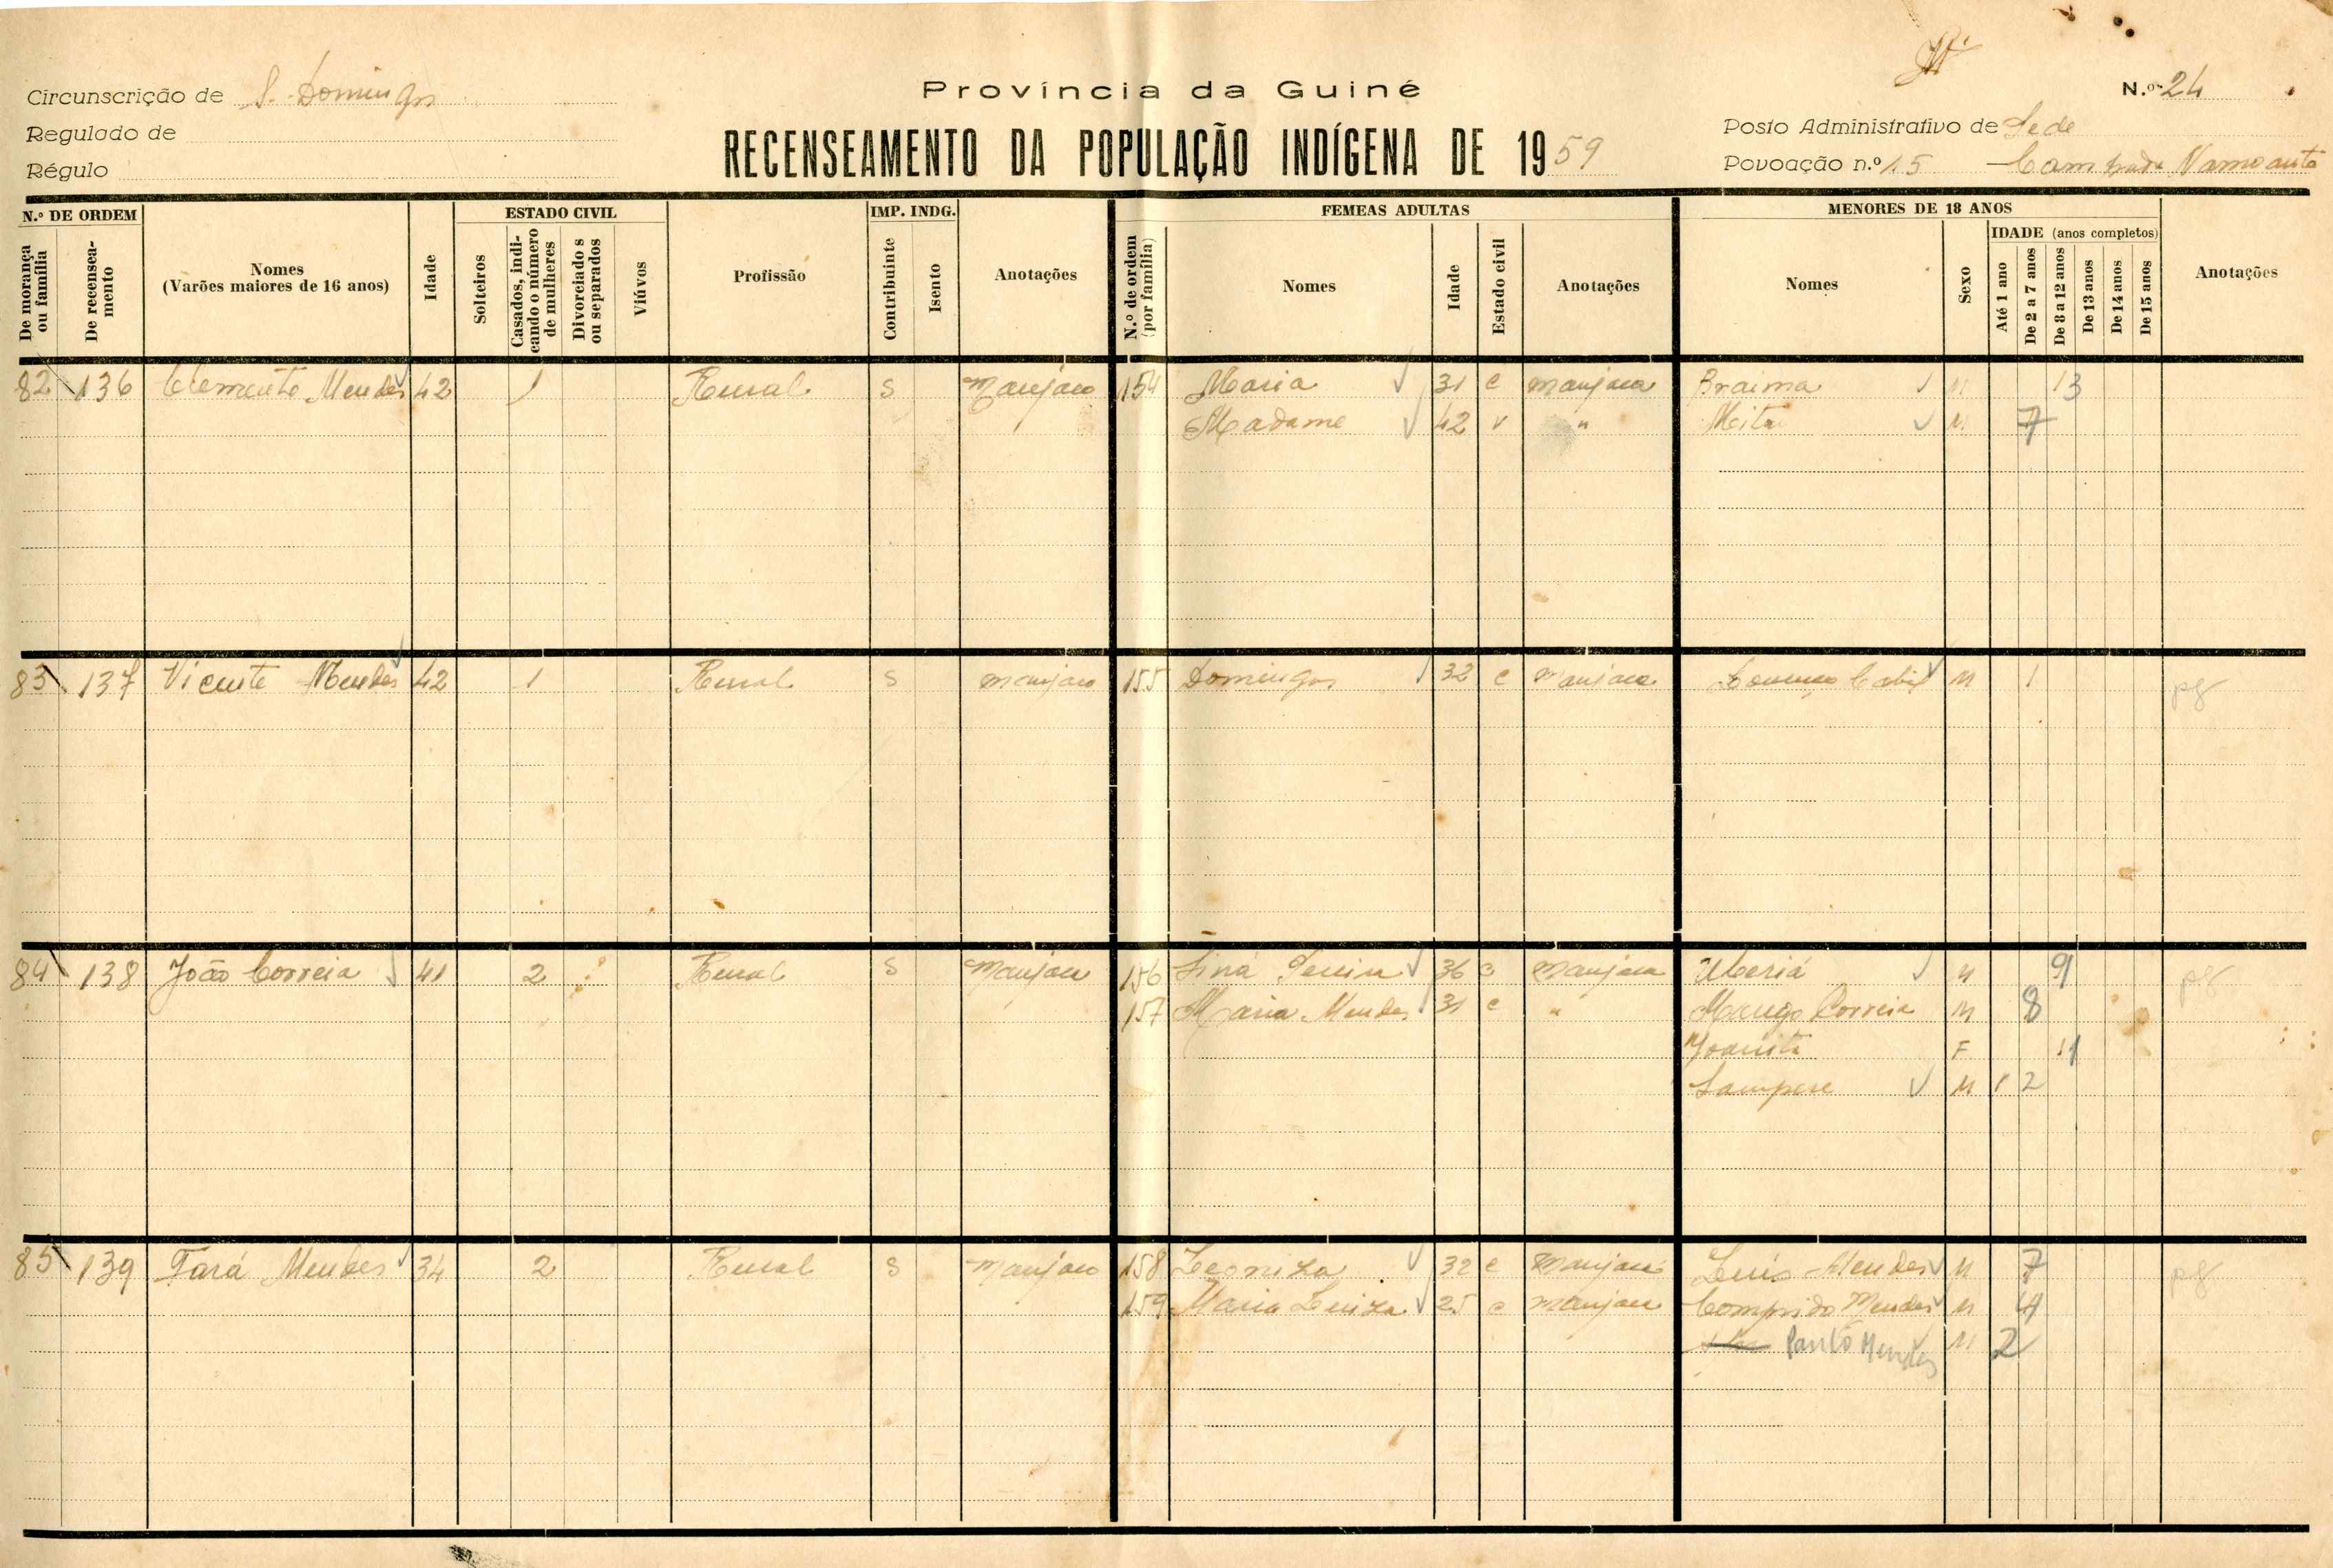 Província da Guiné
N.º 24
Circunscrição de S. Domingos
Regulado de
Régulo
RECENSEAMENTO DA POPULAÇÃO INDÍGENA DE 1959
Posto Administrativo de Sede
Povoação n.º 15 Namoante
N.º DE ORDEM
De morança ou família
De recenseamento
Nomes
(Varões maiores de 16 anos)
Idade
ESTADO CIVIL
Solteiros
Casados, indicando o número de mulheres
Divorciados ou separados
Viúvos
Profissão
IMP. INDG.
Contribuinte
Isento
Anotações
FEMEAS ADULTAS
N.º de ordem (por família)
Nomes
Idade
Estado civil
Anotações
MENORES DE 18 ANOS
Nomes
Sexo
IDADE (anos completos)
Até 1 ano
De 2 a 7 anos
De 8 a 12 anos
De 13 anos
De 14 anos
De 15 anos
Anotações
82 136 Clemente Mendes 42 1 Rural S Manjaco 154 Maria 31 c manjaca Braima M 13
Madame 42 v " M 7
83 137 Vicente Mendes 42 1 Rural S manjaco 155 Domingas 32 c Manjaca M 1 pg
84 138 João Correia 41 2 Rural S Manjaco 156 36 c manjaca M 9 pg
157 Maria Mendes 31 c " Mango Correia M 8
Joanita F 11
Sampere M 1 2
85 139 Tará Mendes 34 2 Rural S Manjaco 158 Leoniza 32 c Manjaca Luis Mendes M 7 pg
159 Maria Luiza 25 c manjaca Comprido Mendes M 4
Paulo Mendes M 2